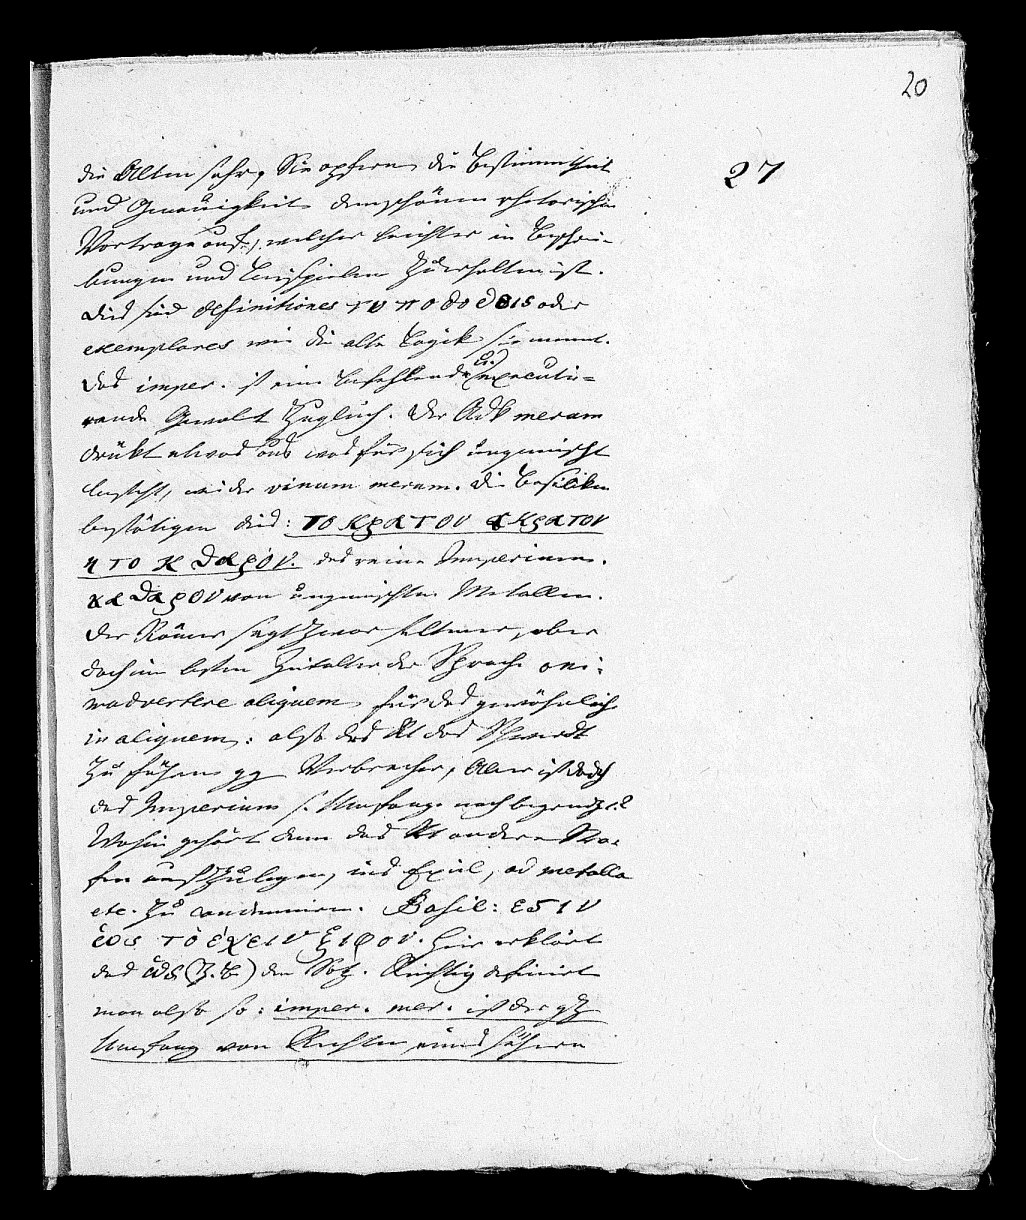 20
27
die Alten sehr, Sie opfern die Bestimmtheit
und Genauigkeit dem schönen rhetorischen
Vortrage auf, welcher leichter in Beschrei-
bungen und Beispielen zu erhalten ist.
Dies sind definitiones τυποδοδεις oder
exemplares wie die alte Logik sie nennt.
Das imper. ist eine befehlende u. executi-
rende Gewalt zugleich. Der Adk meram
drükt etwas aus was für sich ungemischt
besteht, wie der vinum merum. Die Basiliken
bestätigen dies: το κρατου ακρατον
η το κ θαρόν. das reine Imperium.
καθαρον von ungemischten Metallen.
Der Römer sagt zwar seltener, aber
doch im besten Zeitalter der Sprache ani-
madvertere aliquem für das gewöhnliche
in aliquem: also das Rt das Schwerdt
zu führen gg Verbrecher, Aber ist dadch
das Imperium s. Umfange nach begrenzt?
Wohin gehört denn das Rt andere Stra-
fen aufzulegen, ins Exil, ad metalla
etc. zu condemniren. Basil: εςιν
ἑως τὸ ἐχειν ξιφον. hier erklärt
das ἑως (z. B) den Satz. Richtig definirt
man also so: imper. mer. ist der gze
Umfang von Rechten eines höhern